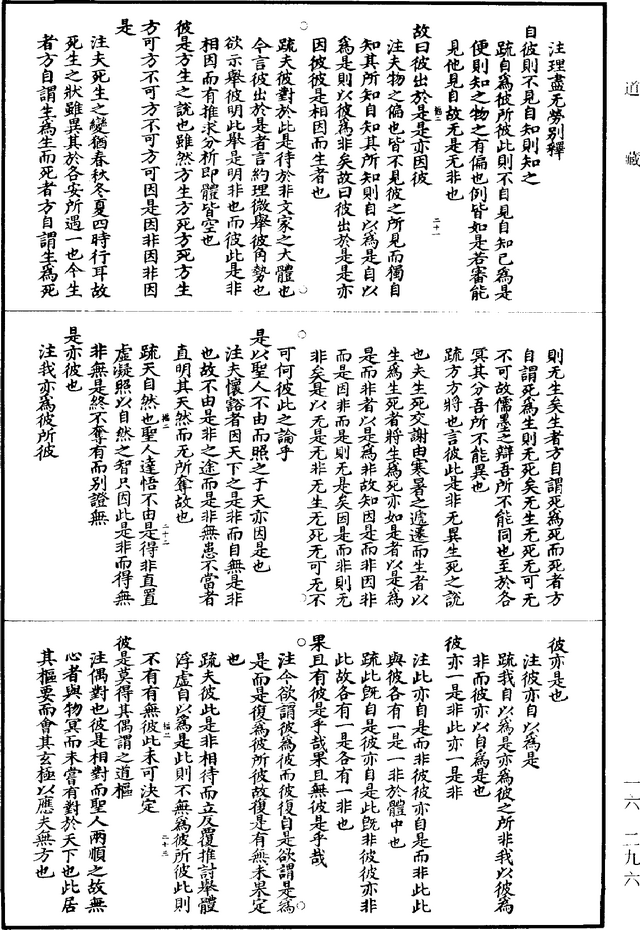 道藏
注理盡无勞別釋
自彼則不見自知則知之
疏自爲彼所彼此則不自見自知己爲是
便則知之物之有偏也例皆如是若審能
見他見自故无是无非也
故曰彼出於是是亦因彼
注夫物之偏也皆不見彼之所見而獨自
知其所知自知其所知則自以爲是自以
爲是則以彼爲非矣故曰彼出於是是亦
因彼彼是相因而生者也
疏夫彼對於此是待於非文家之大體也
今言彼出於是者言約理微舉彼角勢也
欲示舉彼明此舉是明非也而彼此是非
相因而有推求分析即體皆空也
彼是方生之説也雖然方生方死方死方生
方可方不可方不可方可因是因非因非因
是
注夫死生之變猶春秋冬夏四時行耳故
死生之狀雖異其於各安所遇一也今生
者方自謂生爲生而死者方自謂生爲死
則无生矣生者方自謂死爲死而死者方
自謂死爲生則无死矣无生无死无可无
不可故儒墨之辯吾所不能同也至於各
冥其分吾所不能異也
疏方方將也言彼此是非无異生死之説
也夫生死交謝由寒暑之遞遷而生者以
生爲生死者將生爲死亦如是者以是爲
是而非者以是爲非故知因是而非因非
而是因非而是則无是矣因是而非則无
非矣是以无是无非无生无死无可无不
可何彼此之論乎
是以聖人不由而照之于天亦因是也
注夫懷豁者因天下之是非而自無是非
也故不由是非之途而是非無患不當者
直明其天然而无所奪故也
疏天自然也聖人達悟不由是得非直置
虛凝照以自然之智只因此是非而得無
非無是終不奪有而別證無
是亦彼也
注我亦爲彼所彼
彼亦是也
注彼亦自以爲是
疏我自以爲是亦爲彼之所非我以彼爲
非而彼亦以自爲是也
彼亦一是非此亦一是非
注此亦自是而非彼彼亦自是而非此此
與彼各有一是一非於體中也
疏此既自是彼亦自是此既非彼彼亦非
此故各有一是各有一非也
果且有彼是乎哉果且無彼是乎哉
注今欲謂彼爲彼而彼復自是欲謂是爲
是而是復爲彼所彼故彼是有無未果定
也
疏夫彼此是非相待而立反覆推討舉體
浮虛自以爲是此則不無爲彼所彼此則
不有有無彼此未可決定
彼是莫得其偶謂之道樞
注偶對也彼是相對而聖人兩順之故無
心者與物冥而未嘗有對於天下也此居
其樞要而會其玄極以應夫無方也
一六 二九六